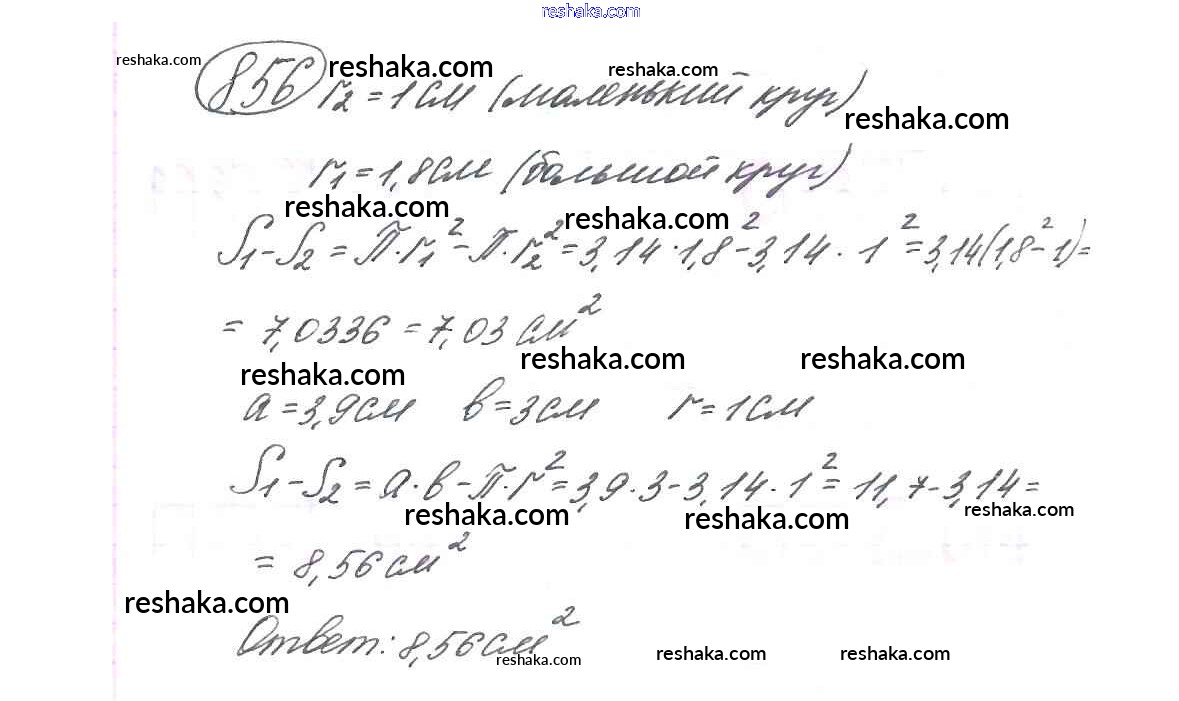 reshaka.com
reshaka.com
856 r₂ = 1 см (маленький круг)
reshaka.com
reshaka.com
reshaka.com
r₁ = 1,8 см (большой круг)
reshaka.com
reshaka.com
S₁ - S₂ = π · r₁² - π · r₂² = 3,14 · 1,8² - 3,14 · 1² = 3,14 (1,8² - 1) =
= 7,0336 = 7,03 см²
reshaka.com
reshaka.com
reshaka.com
a = 3,9 см в = 3 см r = 1 см
S₁ - S₂ = a · в - π · r² = 3,9 · 3 - 3,14 · 1² = 11,7 - 3,14 =
reshaka.com
reshaka.com
reshaka.com
= 8,56 см²
reshaka.com
Ответ: 8,56 см²
reshaka.com
reshaka.com
reshaka.com